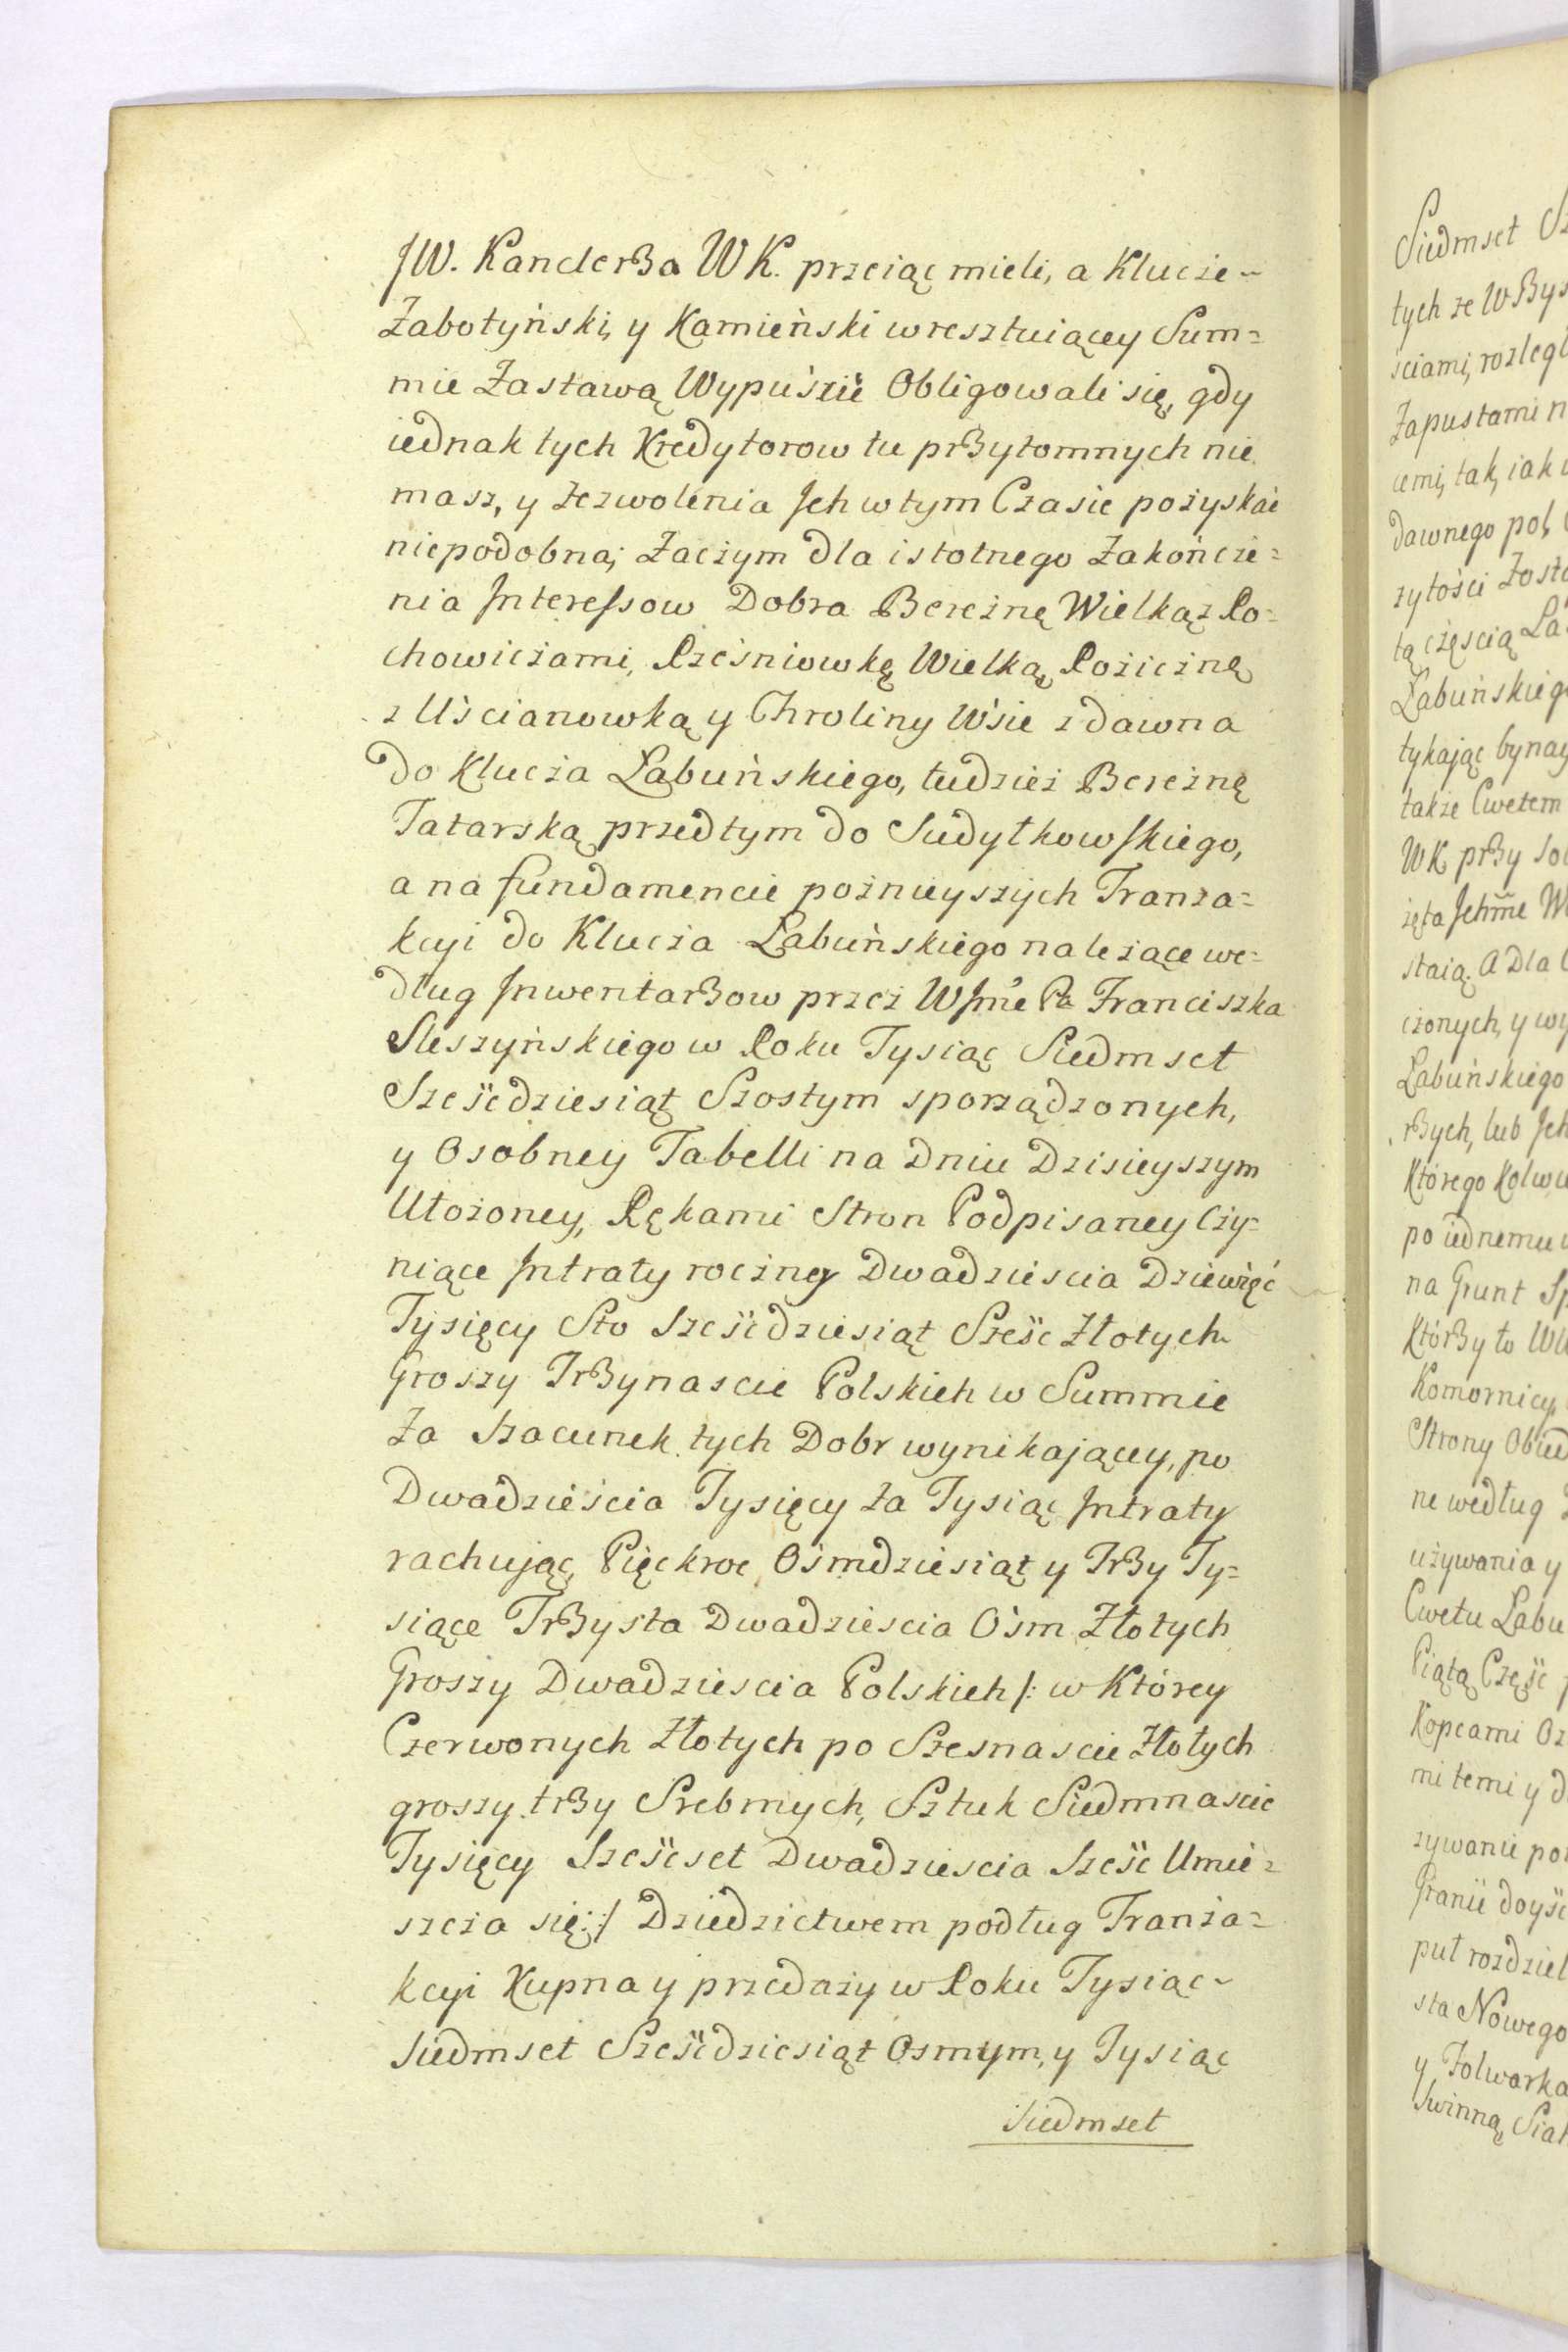 JW. Kanclerza WK. przeiąc mieli, a Klucze~
Żabotyński, y Kamieński w resztuiącey Sum=
mie Zastawą Wypuścić Obligowali się, gdy
iednak tych Kredytorow tu przytomnych nie
masz, y zezwolenia Ich w tym Czasie pozyskać
niepodobna; Zaczym dla istotnego Zakończe=
nia Interessow Dobra Bereznę Wielką z Ro=
chowiczami, Rześniowkę Wielką, Roziczną
z Uścianowką y Chroliny Wsie z dawna
do Klucza Łabuńskiego, tudzież Bereznę
Tatarską przedtym do Sudyłkowskiego,
a na fundamencie poznieyszych Tranza=
kcyi do Klucza Łabuńskiego należące we=
dług Inwentarzow przez WJmć Pa Franciszka
Sleszyńskiego w Roku Tysiąc Siedmset
Sześćdziesiąt Szostym sporządzonych,
y Osobney Tabelli na Dniu Dzisieyszym
Ułożoney, Rękami Stron Podpisaney Czy=
niące Intraty roczney Dwadziescia Dziewięć
Tysięcy Sto Sześćdziesiąt Sześć Złotych
Groszy Trzynascie Polskich w Summie
Za Szacunek tych Dobr wynikającey, po
Dwadzieścia Tysięcy za Tysiąc Intraty
rachując, Pięckroc Ośmdziesiąt y Trzy Ty=
siące Trzysta Dwadziescia Ośm Złotych
Groszy Dwadziescia Polskich /: w Którey
Czerwonych Złotych po Szesnascie Złotych
groszy trzy Srebrnych, Sztuk Siedmnascie
Tysięcy Sześćset Dwadziescia Sześć Umie=
szcza się :/ Dziedzictwem podług Tranza=
kcyi Kupna y przedaży w Roku Tysiąc~
Siedmset Sześćdziesiąt Osmym, y Tysiąc
Siedmset
Siedmset
tych ze
ściami, rozległ
Zapustami n
cemi, tak, iak
dawnego pol,
zytości Zosta
tą częscią Łab
Łabuńskiego
tykając bynay
takze Cwetem
WK przy
zęta Jchmc
staią. A Dla
czonych, y wy
Łabuńskiego
rzych, lub Jch
Którego Kolwie
po iednemu
na Grunt
Którzy to
Komornicy,
Strony Obied
ne według
używania y
Cwetu Łabu
Piątą Część
Kopcami
mi temi y
zywanie
Granic doyść
put rozdziel
sta Nowego
y Folwarka
Swinną,